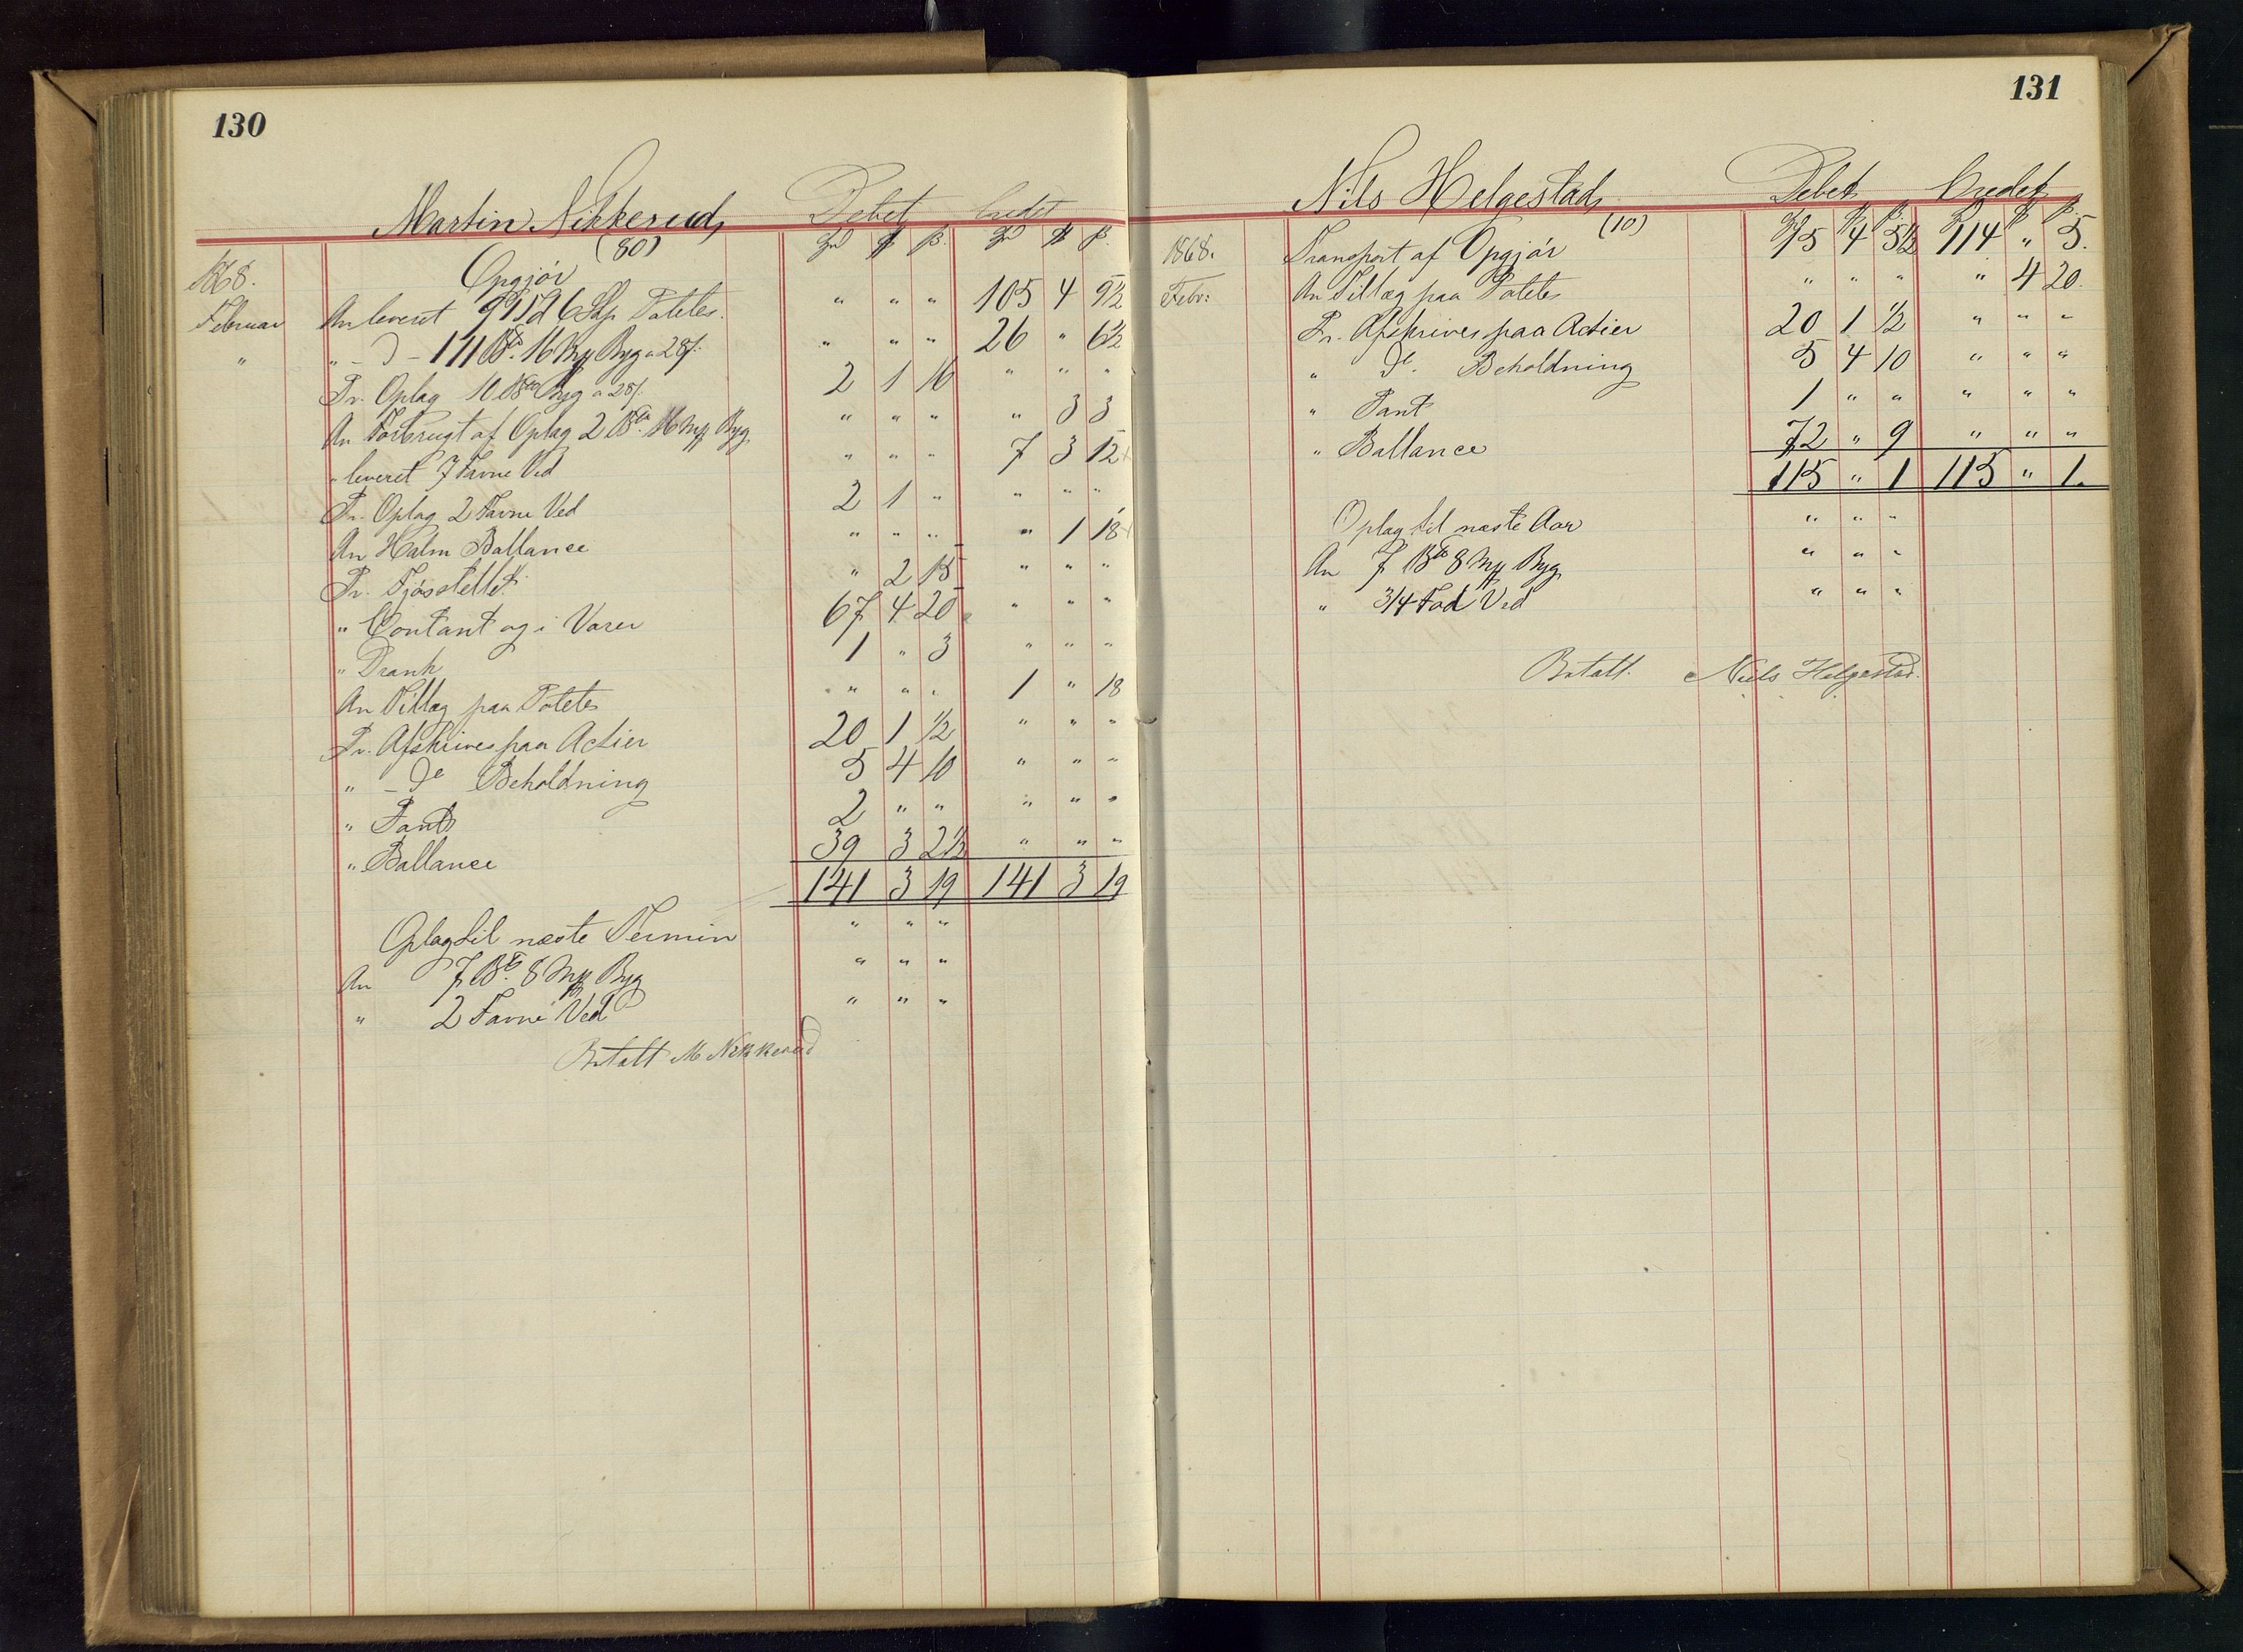 130
Martin Nikkerud Debet Credet
(80) Spd ℔ β. Spd ℔ β.
1868. Opgjør
Februar An leveret 99 Td 6 Skp Poteter. " " " 105 4 9½
" " - D - 111 B℔. 16 Mk Byg a 28 β. " " " 26 " 6½
Pr. Oplag 10 B℔ Byg a 28 β. 2 1 16 " " "
An Forbrugt af Oplag 2 B℔. 16 Mk Byg " " " " 3 3
" leveret 7 Favne Ved " " " 7 3 12
Pr. Oplag 2 Favne Ved 2 1 " " " "
An Halm Ballance " " " " 1 18
Pr. Fjøsstellet " 2 15 " " "
" Contant og i Varer 67 4 20 " " "
" Drank 1 " 3 " " "
An Tillæg paa Poteter " " " 1 " 18
Pr. Afskrives paa Actier 20 1 ½ " " "
" - Do Beholdning 5 4 10 " " "
" Pant 2 " " " " "
" Ballance 39 3 2½ " " "
141 3 19 141 3 19
Oplag til næste Termin " " "
An 7 B℔. 8 Mk Byg " " "
" 2 Favne Ved " " "
Betalt M Nikkerud
131
Nils Helgestad Debet Credet
(10)
1868. Transport af Opgjør 15 4 5½ 114 " 5.
Febr: An Tillæg paa Poteter " " " " 4 20.
Pr. Afskrives paa Actier 20 1 ½ " " "
" Do. Beholdning 5 4 10 " " "
" Pant 1 " " " " "
" Ballance 72 " 9 " " "
115 " 1 115 " 1.
Oplag til næste Aar " " "
An 7 B℔ 8 Mk Byg " " "
" 3/4 Fad Ved " " "
Betalt. Niels Helgestad.